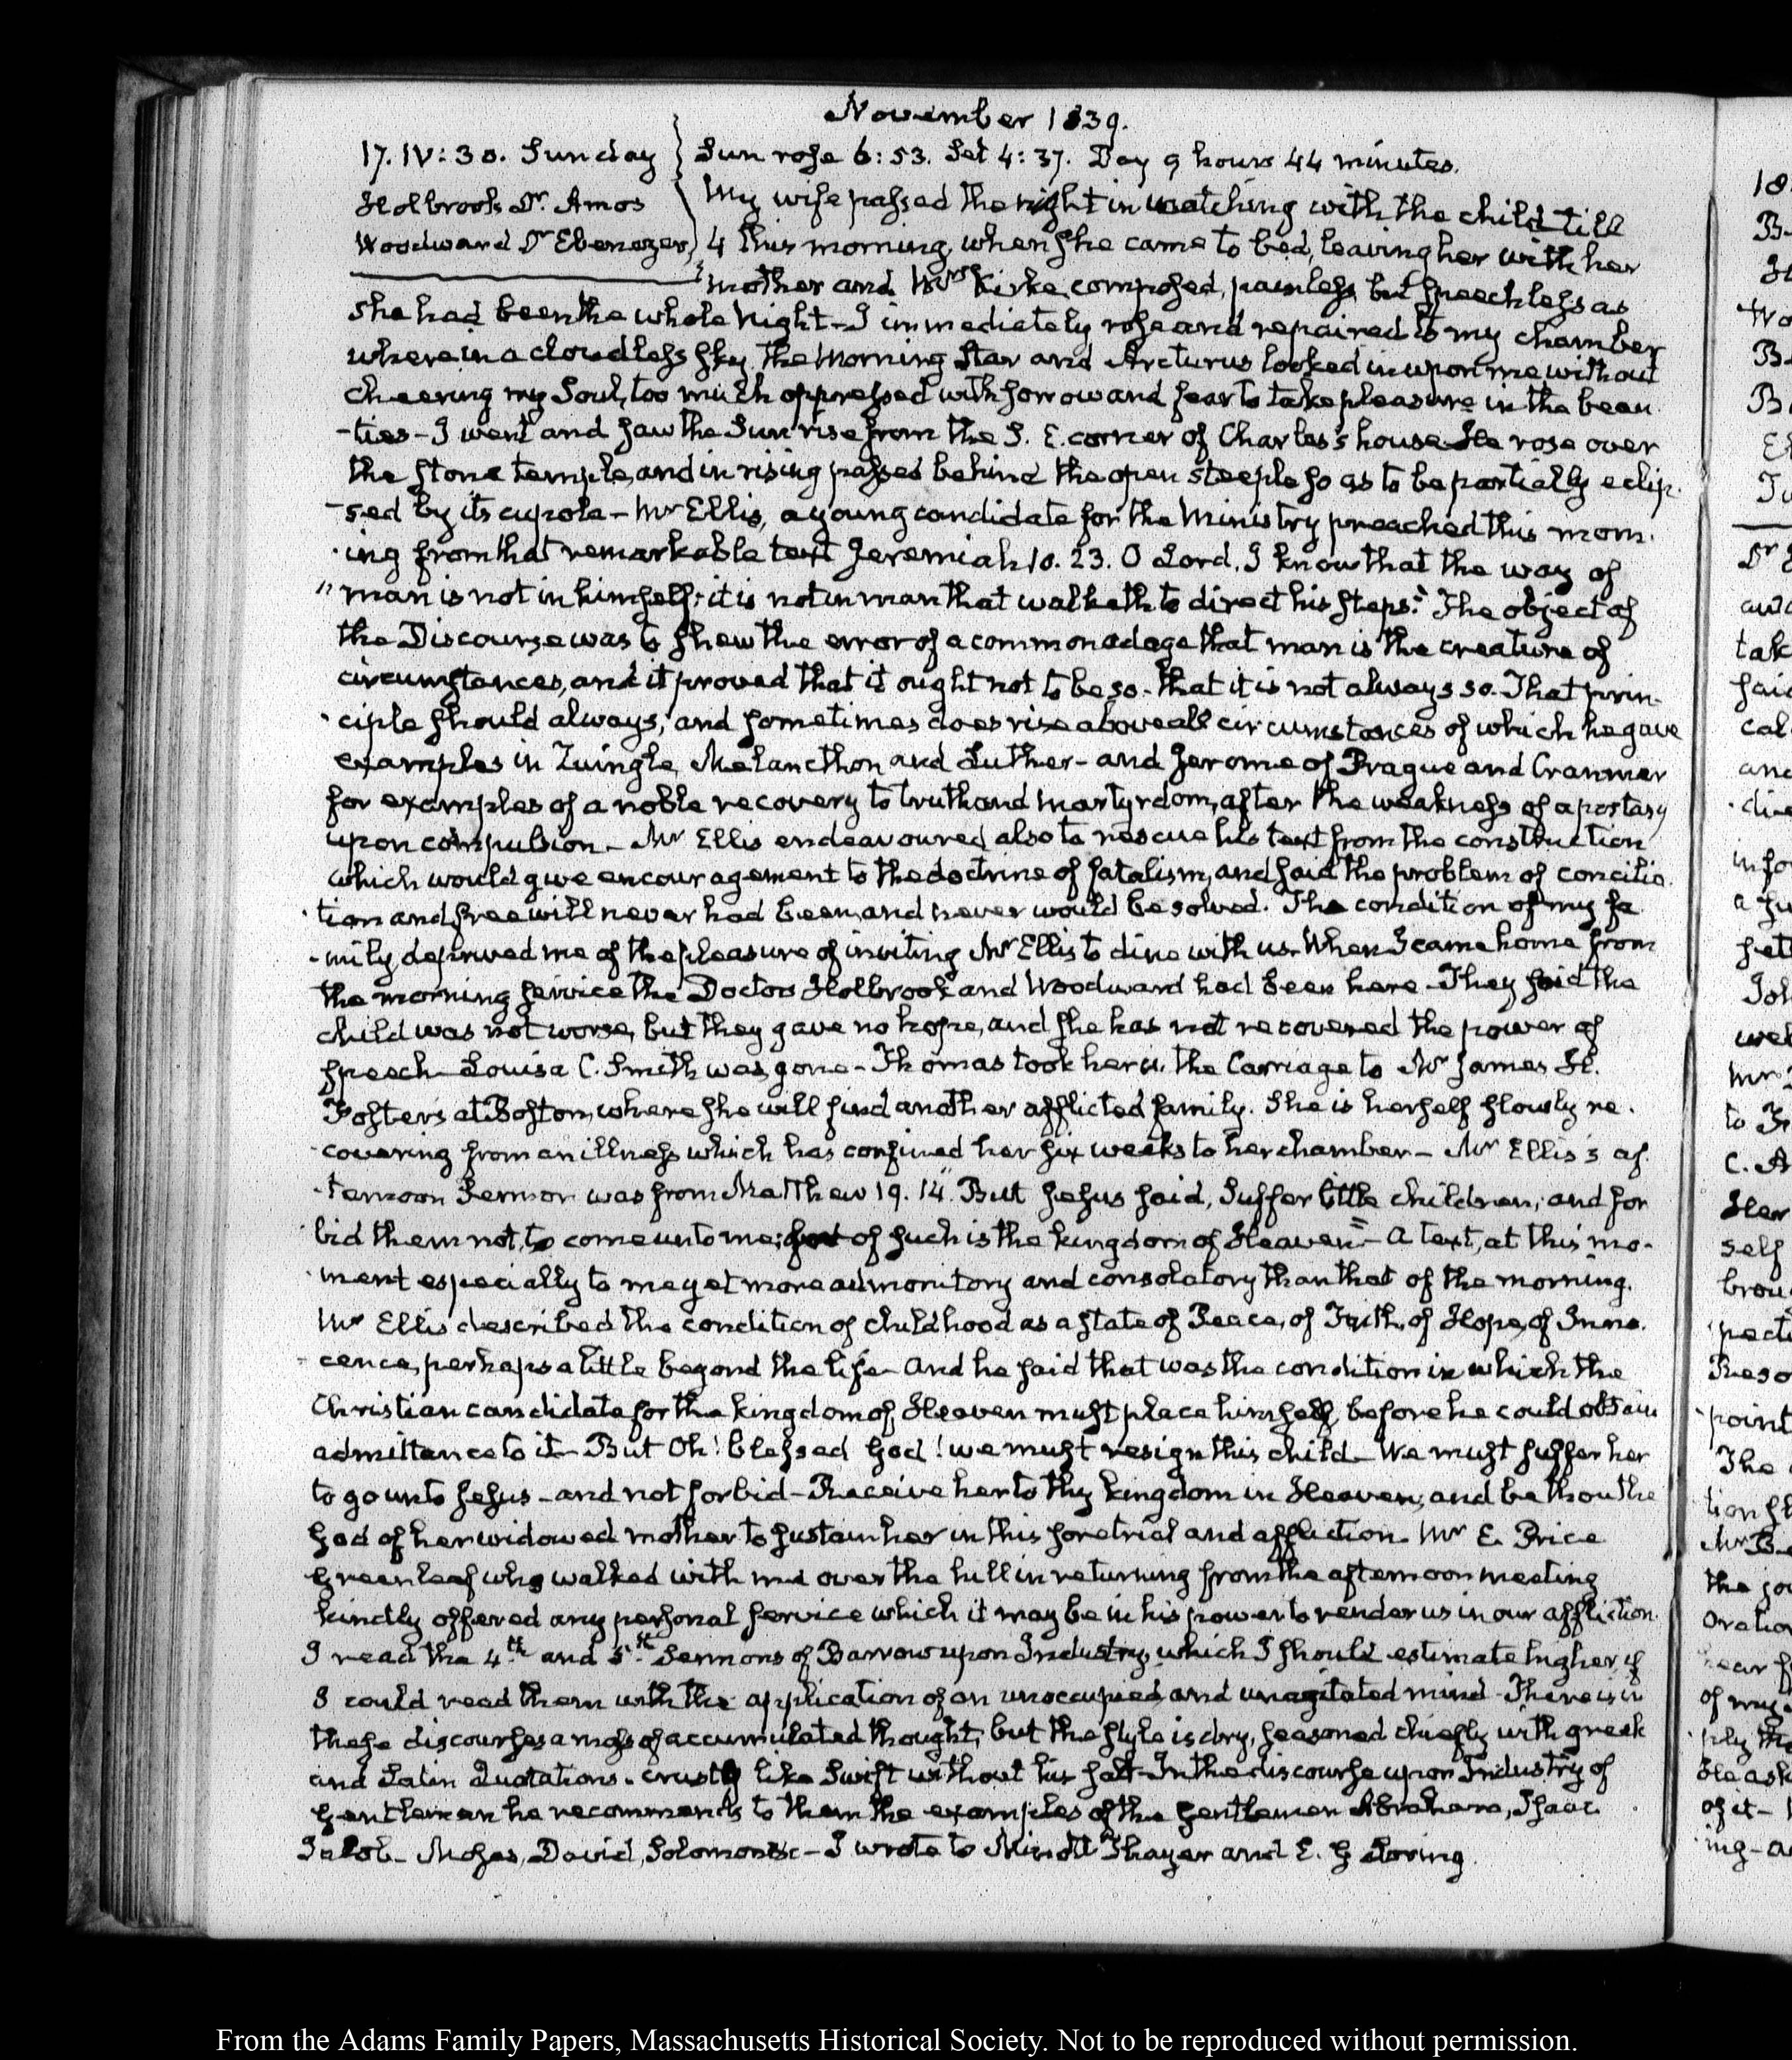 November 1839.
17. IV:30. Sunday } Sun rose 6:53. Set 4:37. Day 9 hours 44 minutes.
Holbrook Dr. Amos } My wife passed the night in watching with the child till
Woodward Dr Ebenezer } 4 this morning, when she came to bed, leaving her with her
mother and Mrs Kirke, composed, painless, but speechless as
she had been the whole Night – I immediately rose and repaired to my chamber
where in a cloudless sky, the Morning Star and Arcturus looked in upon me without
cheering my Soul, too much oppressed with sorrow and fear to take pleasure in the beau
-ties – I went and saw the Sun rise from the S. E. corner of Charles's house He rose over
the Stone temple, and in rising passed behind the open steeple so as to be partially eclip-
-sed by its cupola – Mr Ellis, a young candidate for the Ministry preached this morn-
-ing from that remarkable text Jeremiah 10. 23. O Lord, I know that the way of
"man is not in himself; it is not in man that walketh to direct his steps." The object of
the Discourse was to shew the error of a common adage that man is the creature of
circumstances, and it proved that it ought not to be so – that it is not always so. That prin-
-ciple should always, and sometimes does rise above all circumstances of which he gave
examples in Zuingle, Melancthon and Luther – and Jerome of Prague and Cranmer
for examples of a noble recovery to truth and Martyrdom, after the weakness of apostasy
upon compulsion – Mr Ellis endeavoured also to rescue his text from the construction
which would give encouragement to the doctrine of fatalism, and said the problem of concilia-
-tion and free will never had been, and never would be solved. The condition of my fa
-mily, deprived me of the pleasure of inviting Mr Ellis to dine with us. When I came home from
the morning service the Doctors Holbrook and Woodward had been here – They said the
child was not worse, but they gave no hope, and she has not recovered the power of
speech – Louisa C. Smith was gone – Thomas took her in the Carriage to Mr James H.
Foster's at Boston, where she will find another afflicted family. She is herself slowly re-
-covering from an illness which has confined her six weeks to her chamber – Mr Ellis's af-
-ternoon Sermon was from Matthew 19. 14. "But Jesus said, Suffer little children, and for
bid them not, to come unto me; for of such is the kingdom of Heaven" – a text, at this mo-
-ment especially to me yet more admonitory and consolatory than that of the morning.
Mr Ellis described the condition of childhood as a state of Peace, of Faith, of Hope, of Inno-
-cence, perhaps a little beyond the life – And he said that was the condition in which the
Christian candidate for the kingdom of Heaven must place himself, before he could obtain
admittance to it – But Oh! blessed God! we must resign this child – We must suffer her
to go unto Jesus – and not forbid – Receive her to thy kingdom in Heaven; and be thou the
God of her widowed mother to sustain her in this sore trial and affliction – Mr E. Price
Greenleaf who walked with me over the hill in returning from the afternoon meeting
kindly offered any personal service which it may be in his power to render us in our affliction.
I read the 4th and 5th Sermons of Barrow upon Industry, which I should estimate higher if
I could read them with the application of an unoccupied and unagitated mind – There is in
these discourses a mass of accumulated thought, but the style is dry, seasoned chiefly with greek
and Latin Quotations – crusty like Swift without his salt – In the discourse upon Industry of
Gentlemen he recommends to them the examples of the Gentlemen Abraham, Isaac
Jacob – Moses, David, Solomon &c – I wrote to Minott Thayer and E. G Loring.
From the Adams Family Papers, Massachusetts Historical Society. Not to be reproduced without permission.